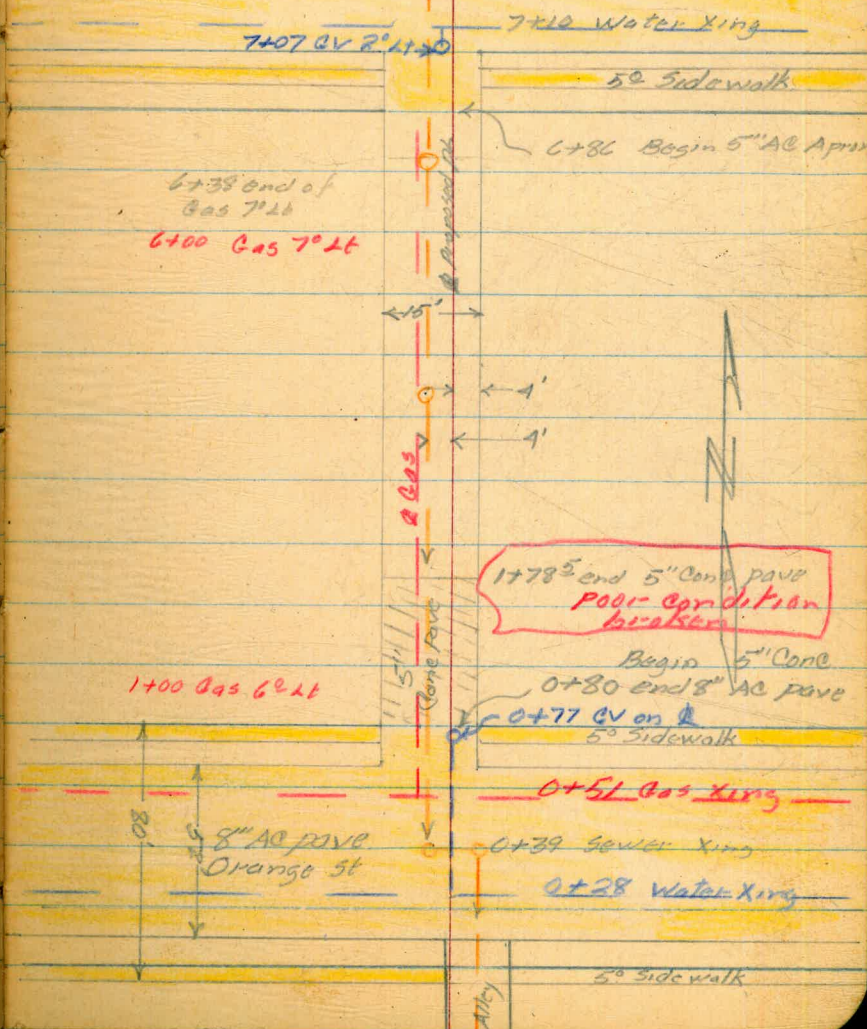 7+10 Water Xing
7+07 CV 2° Lt
5° Sidewalk
6+86 Begin 5" AC
6+38 end of
Gas 7° Lt
6+00 Gas 7° Lt
℄ Proposed
15'
4'
4'
℄ Gas
N
1+78⁵ end 5" Conc pave
Poor condition
broken
5"
Conc Pave
Begin 5" Conc
0+80 end 8" AC pave
1+00 Gas 6° Lt
0+77 CV on ℄
5° Sidewalk
0+51 Gas Xing
80'
8" AC pave
Orange St
0+39 Sewer Xing
0+28 Water Xing
5° Sidewalk
Alley